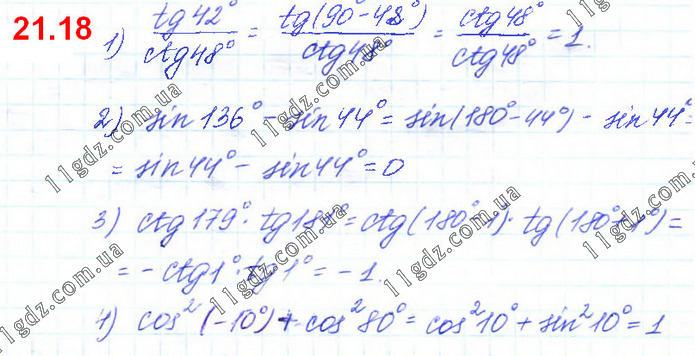 21.18
1) tg42°/ctg48° = tg(90°-48°)/ctg48° = ctg48°/ctg48° = 1.
2) sin136° - sin44° = sin(180°-44°) - sin44° =
= sin44° - sin44° = 0
3) ctg179° · tg181° = ctg(180°-1°) · tg(180°+1°) =
= -ctg1° · tg1° = -1.
4) cos²(-10°) + cos²80° = cos²10° + sin²10° = 1
11gdz.com.ua
11gdz.com.ua
11gdz.com.ua
11gdz.com.ua
11gdz.com.ua
11gdz.com.ua